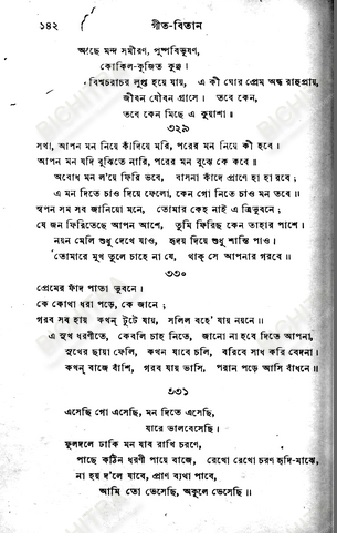 ১৪২ গীত-বিতান
আছে মন্দ সমীরণ, পুষ্পবিভূষণ,
কোকিল-কূজিত কুঞ্জ।
বিশ্বচরাচর লুপ্ত হয়ে যায়, এ কী ঘোর প্রেম অন্ধ রাহুপ্রায়,
জীবন যৌবন গ্রাসে। তবে কেন,
তবে কেন মিছে এ কুয়াশা॥
৩২৯
সখা, আপন মন নিয়ে কাঁদিয়ে মরি, পরের মন নিয়ে কী হবে।
আপন মন যদি বুঝিতে নারি, পরের মন বুঝে কে কবে॥
অবোধ মন ল'য়ে ফিরি ভবে, বাসনা কাঁদে প্রাণে হা হা রবে;
এ মন দিতে চাও দিয়ে ফেলো, কেন গো নিতে চাও মন তবে॥
স্বপন সম সব জানিয়ো মনে, তোমার কেহ নাই এ ত্রিভুবনে;
যে জন ফিরিতেছে আপন আশে, তুমি ফিরিছ কেন তাহার পাশে।
নয়ন মেলি শুধু দেখে যাও, হৃদয় দিয়ে শুধু শান্তি পাও।
তোমারে মুখ তুলে চাহে না যে, থাক্ সে আপনার গরবে॥
৩৩০
প্রেমের ফাঁদ পাতা ভুবনে।
কে কোথা ধরা পড়ে, কে জানে;
গরব সব হায় কখন্ টুটে যায়, সলিল বহে' যায় নয়নে॥
এ সুখ ধরণীতে, কেবলি চাহ নিতে, জানো না হবে দিতে আপনা,
সুখের ছায়া ফেলি, কখন যাবে চলি, বরিবে সাধ করি বেদনা।
কখন্ বাজে বাঁশি, গরব যায় ভাসি, পরান পড়ে আসি বাঁধনে॥
৩৩১
এসেছি গো এসেছি, মন দিতে এসেছি,
যারে ভালবেসেছি।
ফুলদলে ঢাকি মন যাব রাখি চরণে,
পাছে কঠিন ধরণী পায়ে বাজে, রেখো রেখো চরণ হৃদি-মাঝে,
না হয় দ'লে যাবে, প্রাণ ব্যথা পাবে,
আমি তো ভেসেছি, অকূলে ভেসেছি॥